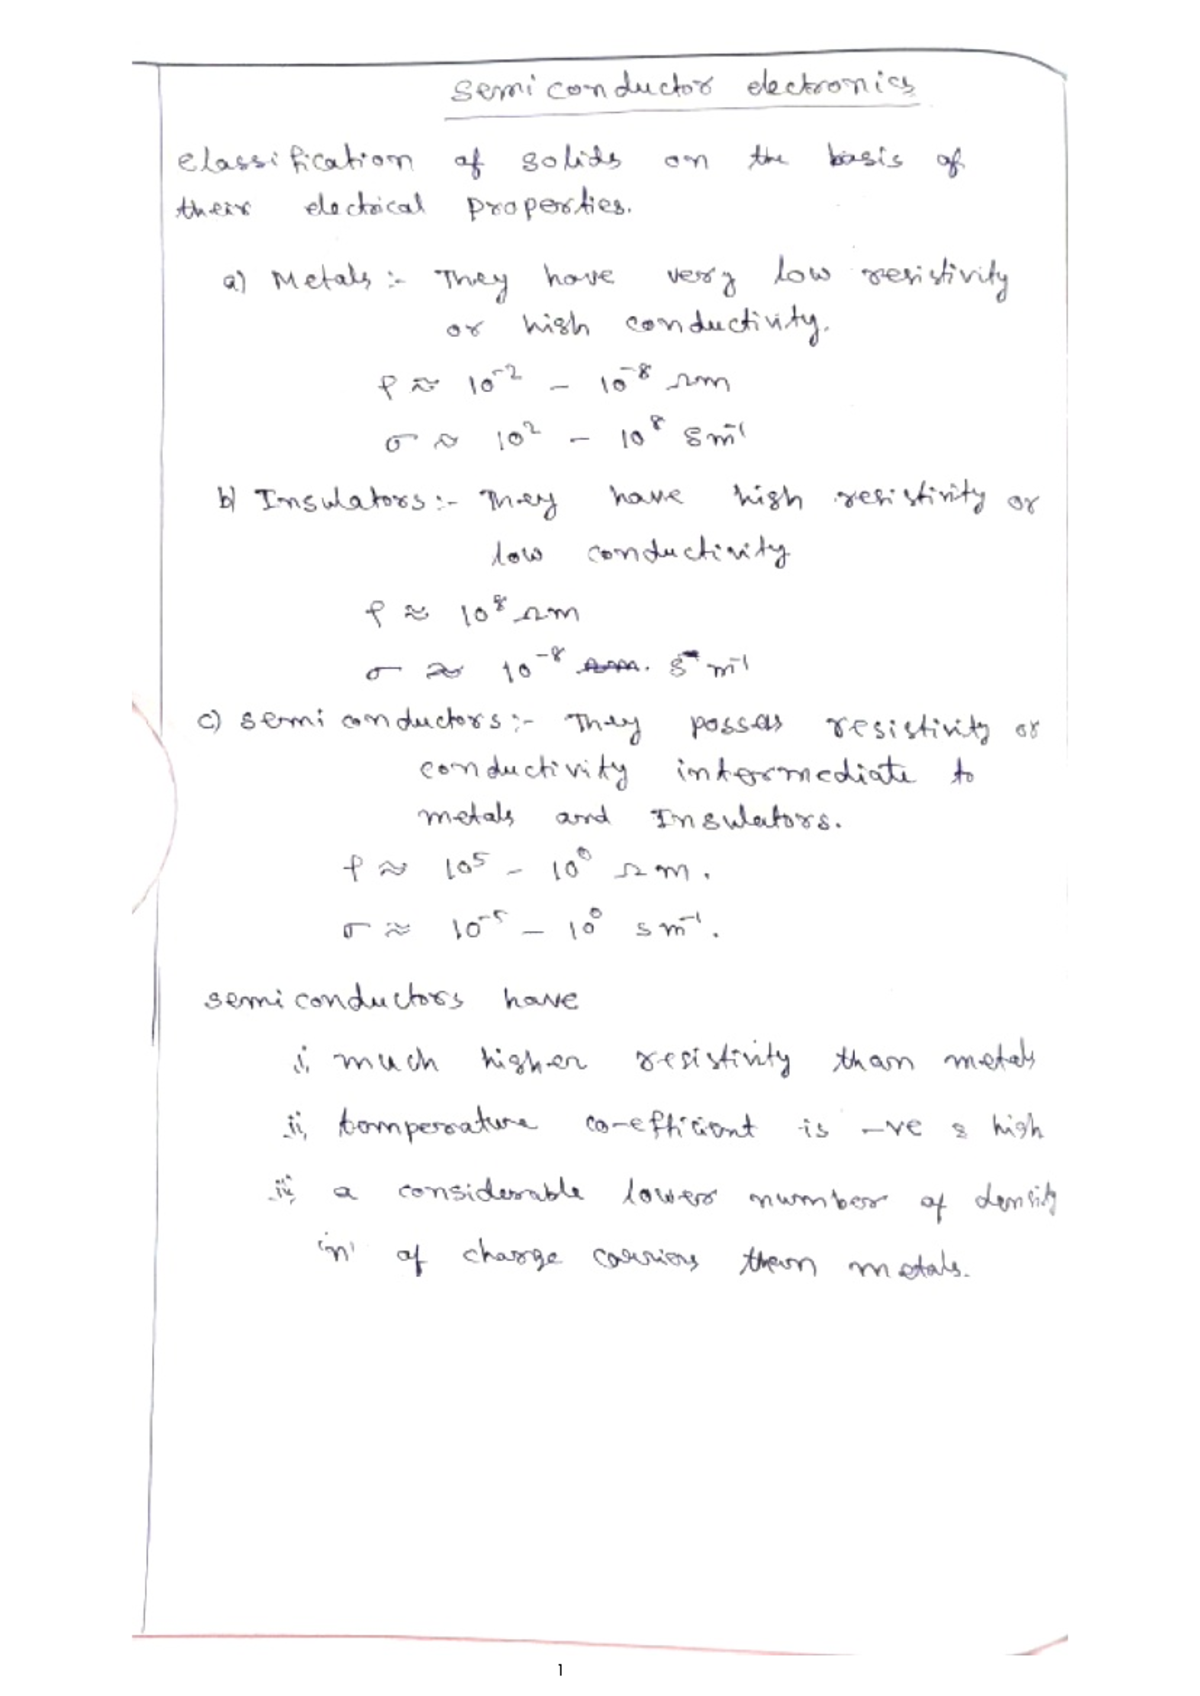 Semiconductor electronics
classification of solids on the basis of
their electrical properties.
a) Metals :- They have very low resistivity
or high conductivity.
ρ ≈ 10⁻² – 10⁻⁸ Ωm
σ ≈ 10² – 10⁸ Sm⁻¹
b) Insulators :- They have high resistivity or
low conductivity
ρ ≈ 10⁸ Ωm
σ ≈ 10⁻⁸ S m⁻¹
c) semiconductors :- They possess resistivity or
conductivity intermediate to
metals and Insulators.
ρ ≈ 10⁵ – 10⁰ Ωm.
σ ≈ 10⁻⁵ – 10⁰ sm⁻¹.
semiconductors have
i, much higher resistivity than metals
ii, temperature co-efficient is -ve & high
iii, a considerable lower number of density
'n' of charge carriers than metals.
1